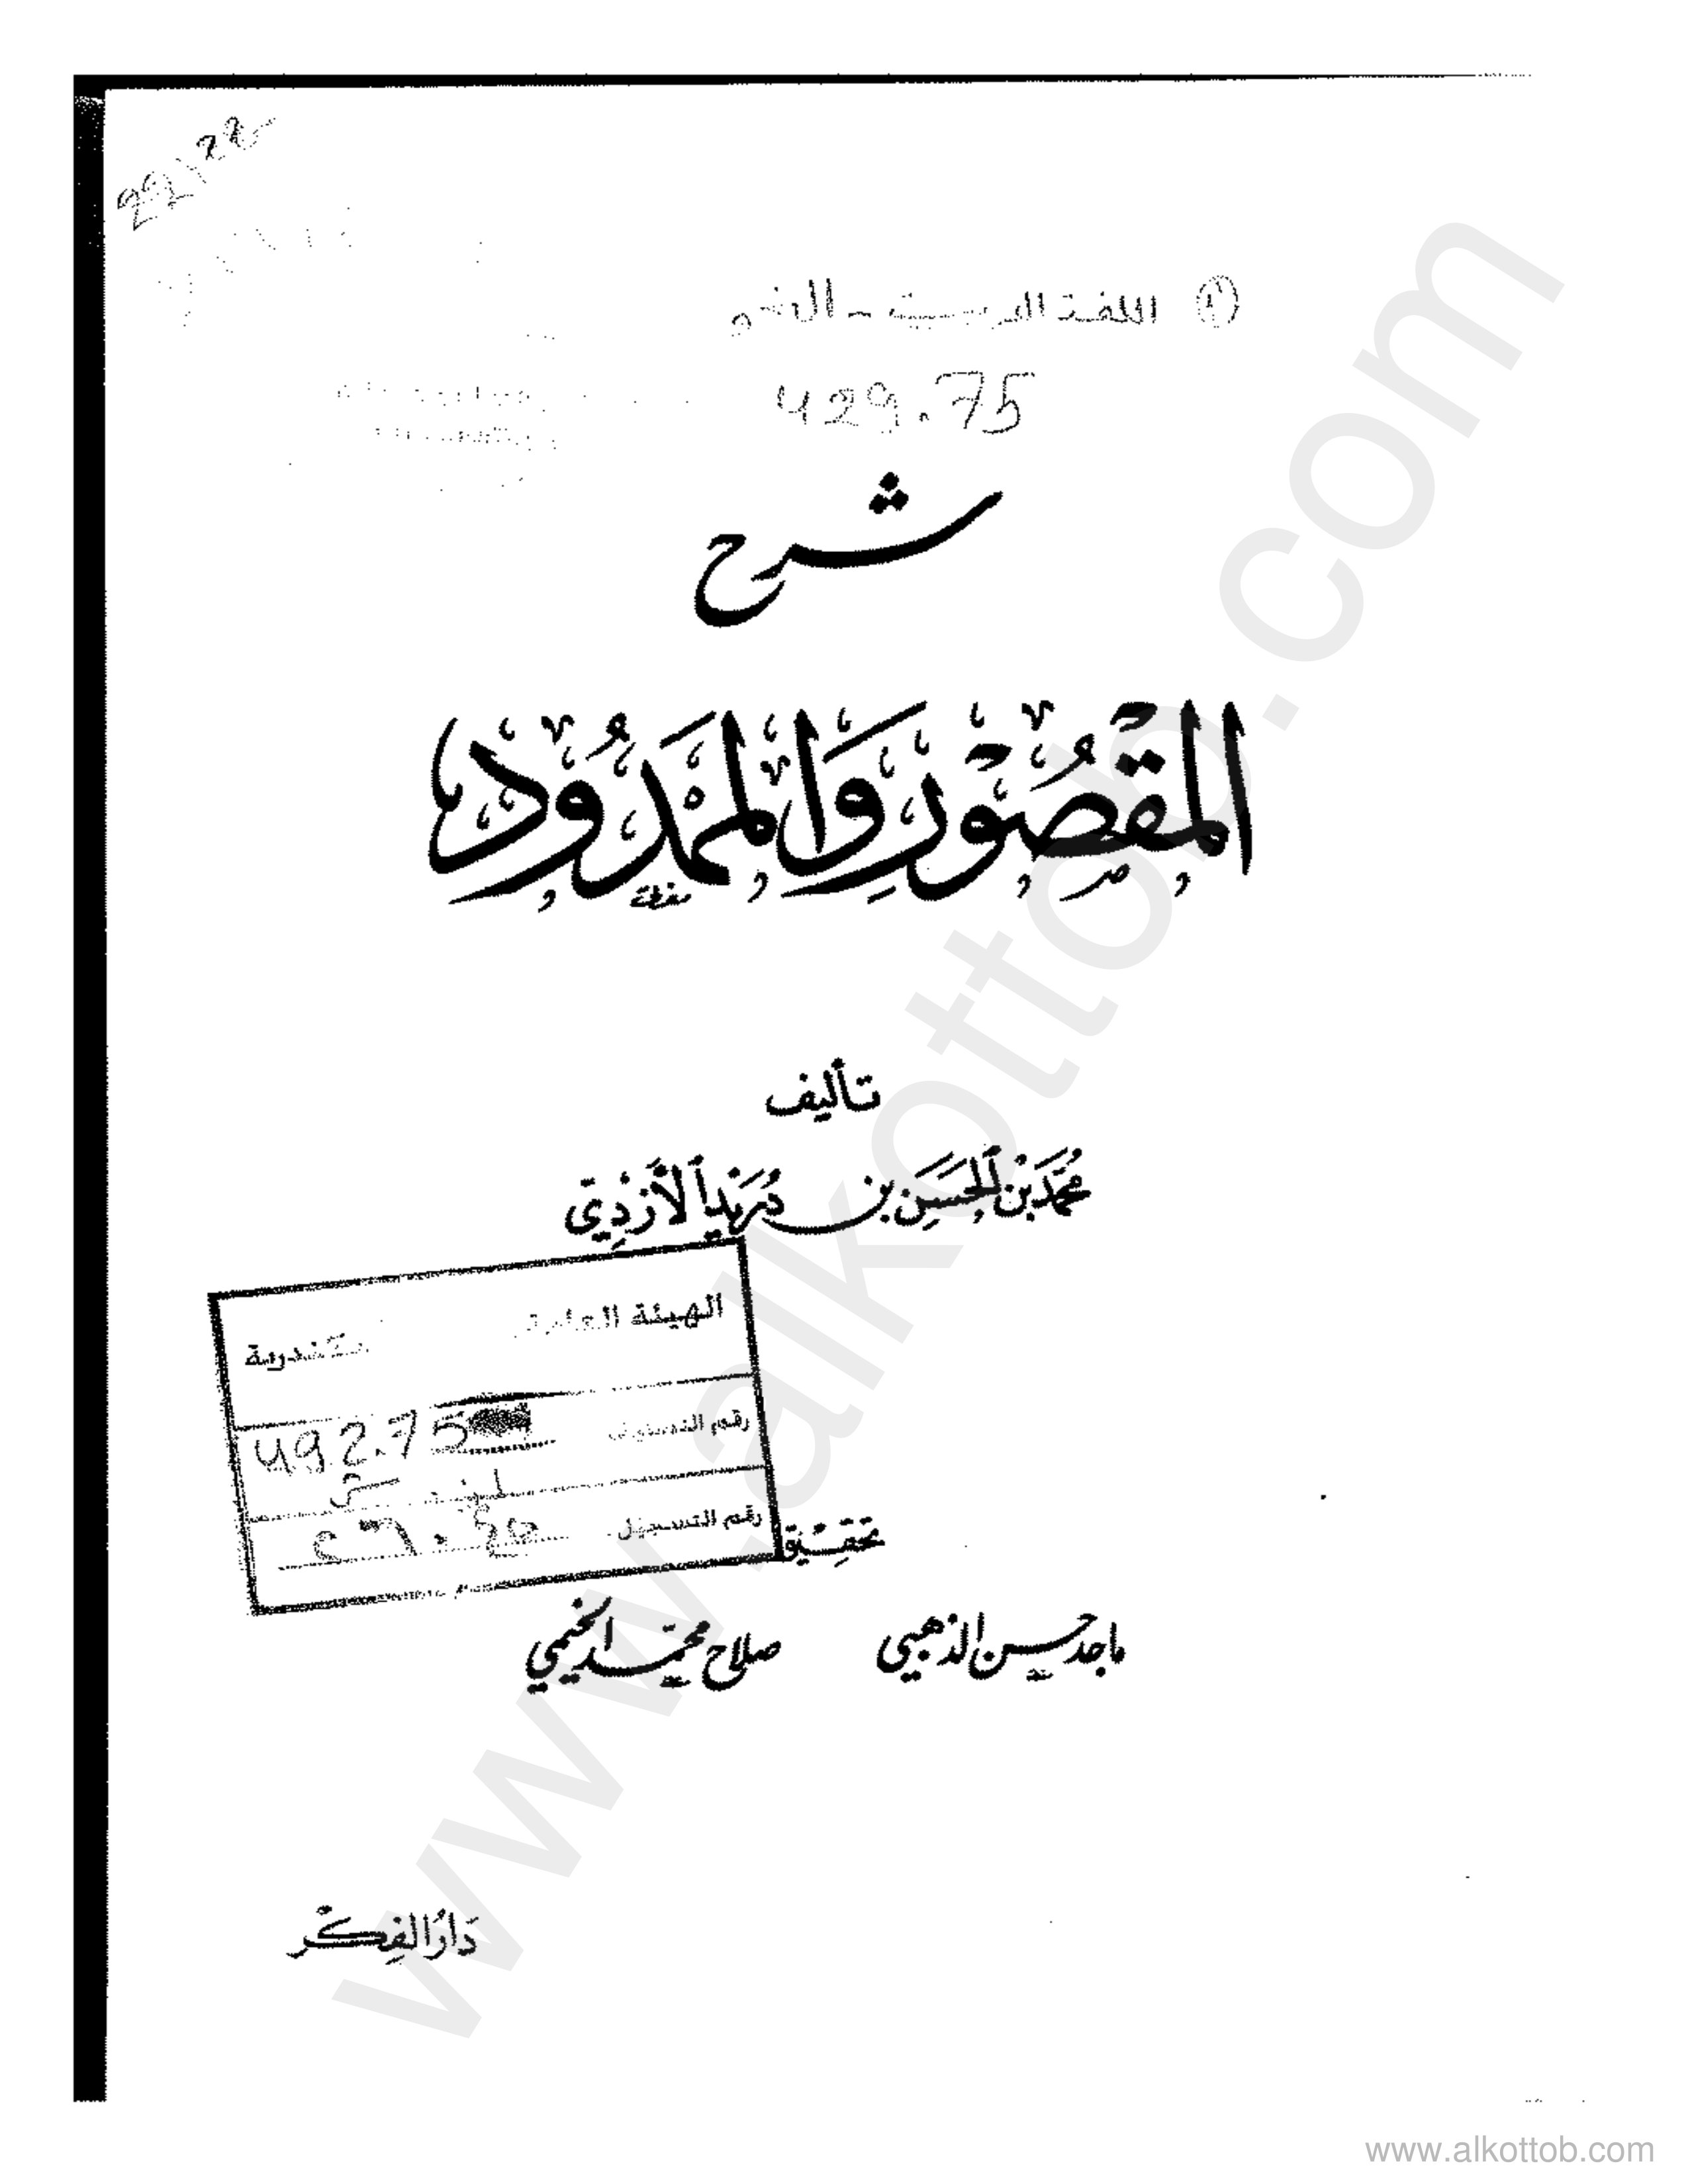 ① اللغة العربية - النحو
429.75
شرح
المَقْصُورِ وَالمَمْدُودِ
تأليف
مُحَمَّد بْن الحَسَن بن دُرَيْد الأَزْدِيّ
الهيئة العامة
492.75
رقم التصنيف
رقم التسجيل
تحقيق
ماجد حسن الذهبي
صلاح محمد الخيمي
دَارُ الفِكْر
www.alkottob.com
www.alkottob.com